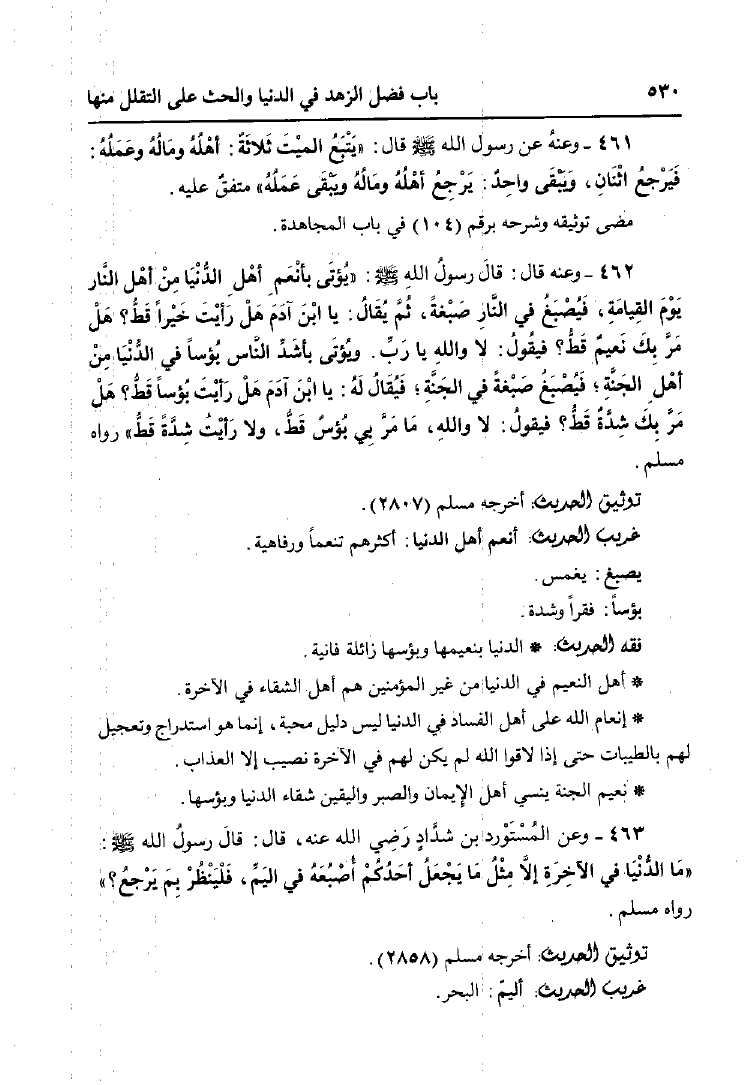 ٥٣٠ باب فضل الزهد في الدنيا والحث على التقلل منها
٤٦١ ـ وعنهُ عن رسول الله ﷺ قال: «يَتْبَعُ الميْتَ ثَلاثَةٌ: أهْلُهُ ومَالُهُ وعَمَلُهُ:
فَيَرْجعُ اثْنَانِ، وَيَبْقَى واحِدٌ: يَرْجعُ أهْلُهُ ومَالُهُ ويَبْقَى عَمَلُهُ» متفقٌ عليه.
مضى توثيقه وشرحه برقم (١٠٤) في باب المجاهدة.
٤٦٢ ـ وعنه قال: قالَ رسولُ اللهِ ﷺ: «يُؤتَى بأنْعَمِ أهْلِ الدُّنْيَا مِنْ أهْلِ النَّار
يَوْمَ القِيامَةِ، فَيُصْبَغُ في النَّارِ صَبْغَةً، ثُمَّ يُقالُ: يا ابْنَ آدَمَ هَلْ رَأيْتَ خَيْراً قَطُّ؟ هَلْ
مَرَّ بِكَ نَعيمٌ قَطُّ؟ فيقُولُ: لا والله يا رَبِّ. ويُؤتَى بأشَدِّ النَّاس بُؤساً في الدُّنْيَا مِنْ
أهْلِ الجَنَّةِ؛ فَيُصْبَغُ صَبْغَةً في الجَنَّةِ؛ فَيُقَالُ لَهُ: يا ابْنَ آدَمَ هَلْ رَأيْتَ بُؤساً قَطُّ؟ هَلْ
مَرَّ بكَ شِدَّةٌ قَطُّ؟ فيقولُ: لا واللهِ، مَا مَرَّ بي بُؤسٌ قَطُّ، ولا رَأيْتُ شِدَّةً قَطُّ» رواه
مسلم.
توثيق الحديث: أخرجه مسلم (٢٨٠٧).
غريب الحديث: أنعم أهل الدنيا: أكثرهم تنعماً ورفاهية.
يصبغ: يغمس.
بؤساً: فقراً وشدة.
فقه الحديث: * الدنيا بنعيمها وبؤسها زائلة فانية.
* أهل النعيم في الدنيا من غير المؤمنين هم أهل الشقاء في الآخرة.
* إنعام الله على أهل الفساد في الدنيا ليس دليل محبة، إنما هو استدراج وتعجيل
لهم بالطيبات حتى إذا لاقوا الله لم يكن لهم في الآخرة نصيب إلا العذاب.
* نعيم الجنة ينسي أهل الإيمان والصبر واليقين شقاء الدنيا وبؤسها.
٤٦٣ ـ وعن المُسْتَوْرد بن شدَّادٍ رَضِي الله عنه، قال: قالَ رسولُ الله ﷺ:
«مَا الدُّنْيَا في الآخِرَةِ إلَّا مِثْلُ مَا يَجْعَلُ أحَدُكُمْ أُصْبُعَهُ في اليَمِّ، فَلْيَنْظُرْ بِمَ يَرْجعُ؟»
رواه مسلم.
توثيق الحديث: أخرجه مسلم (٢٨٥٨).
غريب الحديث: أليمّ: البحر.